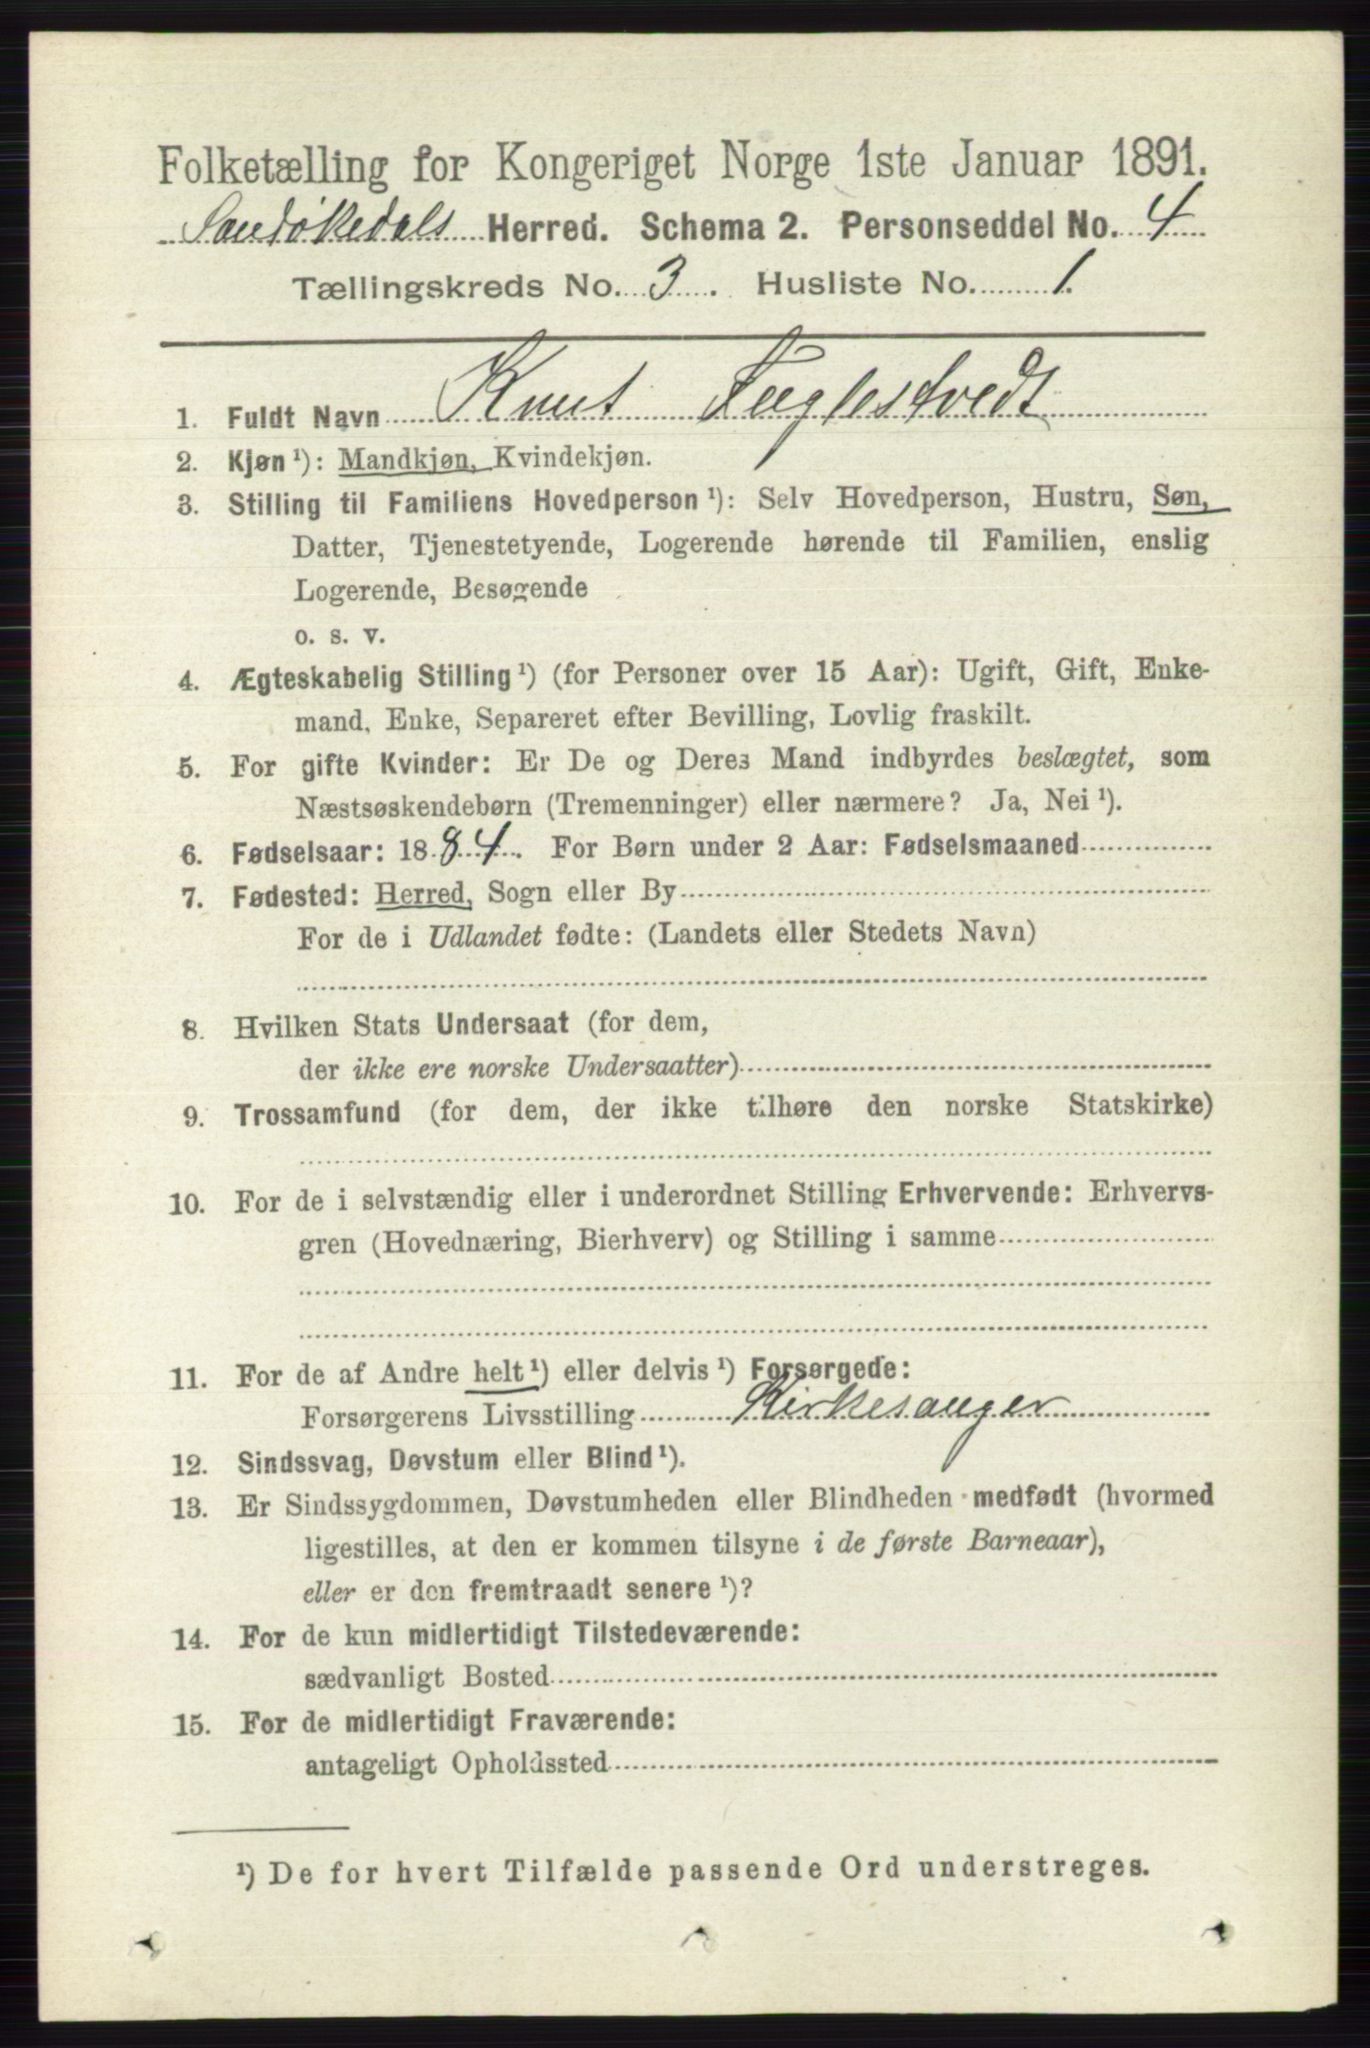 Folketælling for Kongeriget Norge 1ste Januar 1891.
Sandøkedals Herred. Schema 2. Personseddel No. 4
Tællingskreds No. 3. Husliste No. 1.
1. Fuldt Navn Knut Fuglestvedt
2. Kjøn ¹): Mandkjøn, Kvindekjøn.
3. Stilling til Familiens Hovedperson ¹): Selv Hovedperson, Hustru, Søn,
Datter, Tjenestetyende, Logerende hørende til Familien, enslig
Logerende, Besøgende
o. s. v.
4. Ægteskabelig Stilling ¹) (for Personer over 15 Aar): Ugift, Gift, Enke-
mand, Enke, Separeret efter Bevilling, Lovlig fraskilt.
5. For gifte Kvinder: Er De og Deres Mand indbyrdes beslægtet, som
Næstsøskendebørn (Tremenninger) eller nærmere? Ja, Nei ¹).
6. Fødselsaar: 1884. For Børn under 2 Aar: Fødselsmaaned
7. Fødested: Herred, Sogn eller By
For de i Udlandet fødte: (Landets eller Stedets Navn)
8. Hvilken Stats Undersaat (for dem,
der ikke ere norske Undersaatter)
9. Trossamfund (for dem, der ikke tilhøre den norske Statskirke)
10. For de i selvstændig eller i underordnet Stilling Erhvervende: Erhvervs-
gren (Hovednæring, Bierhverv) og Stilling i samme
11. For de af Andre helt ¹) eller delvis ¹) Forsørgede:
Forsørgerens Livsstilling Kirkesanger
12. Sindssvag, Døvstum eller Blind ¹).
13. Er Sindssygdommen, Døvstumheden eller Blindheden medfødt (hvormed
ligestilles, at den er kommen tilsyne i de første Barneaar),
eller er den fremtraadt senere ¹)?
14. For de kun midlertidigt Tilstedeværende:
sædvanligt Bosted
15. For de midlertidigt Fraværende:
antageligt Opholdssted
¹) De for hvert Tilfælde passende Ord understreges.